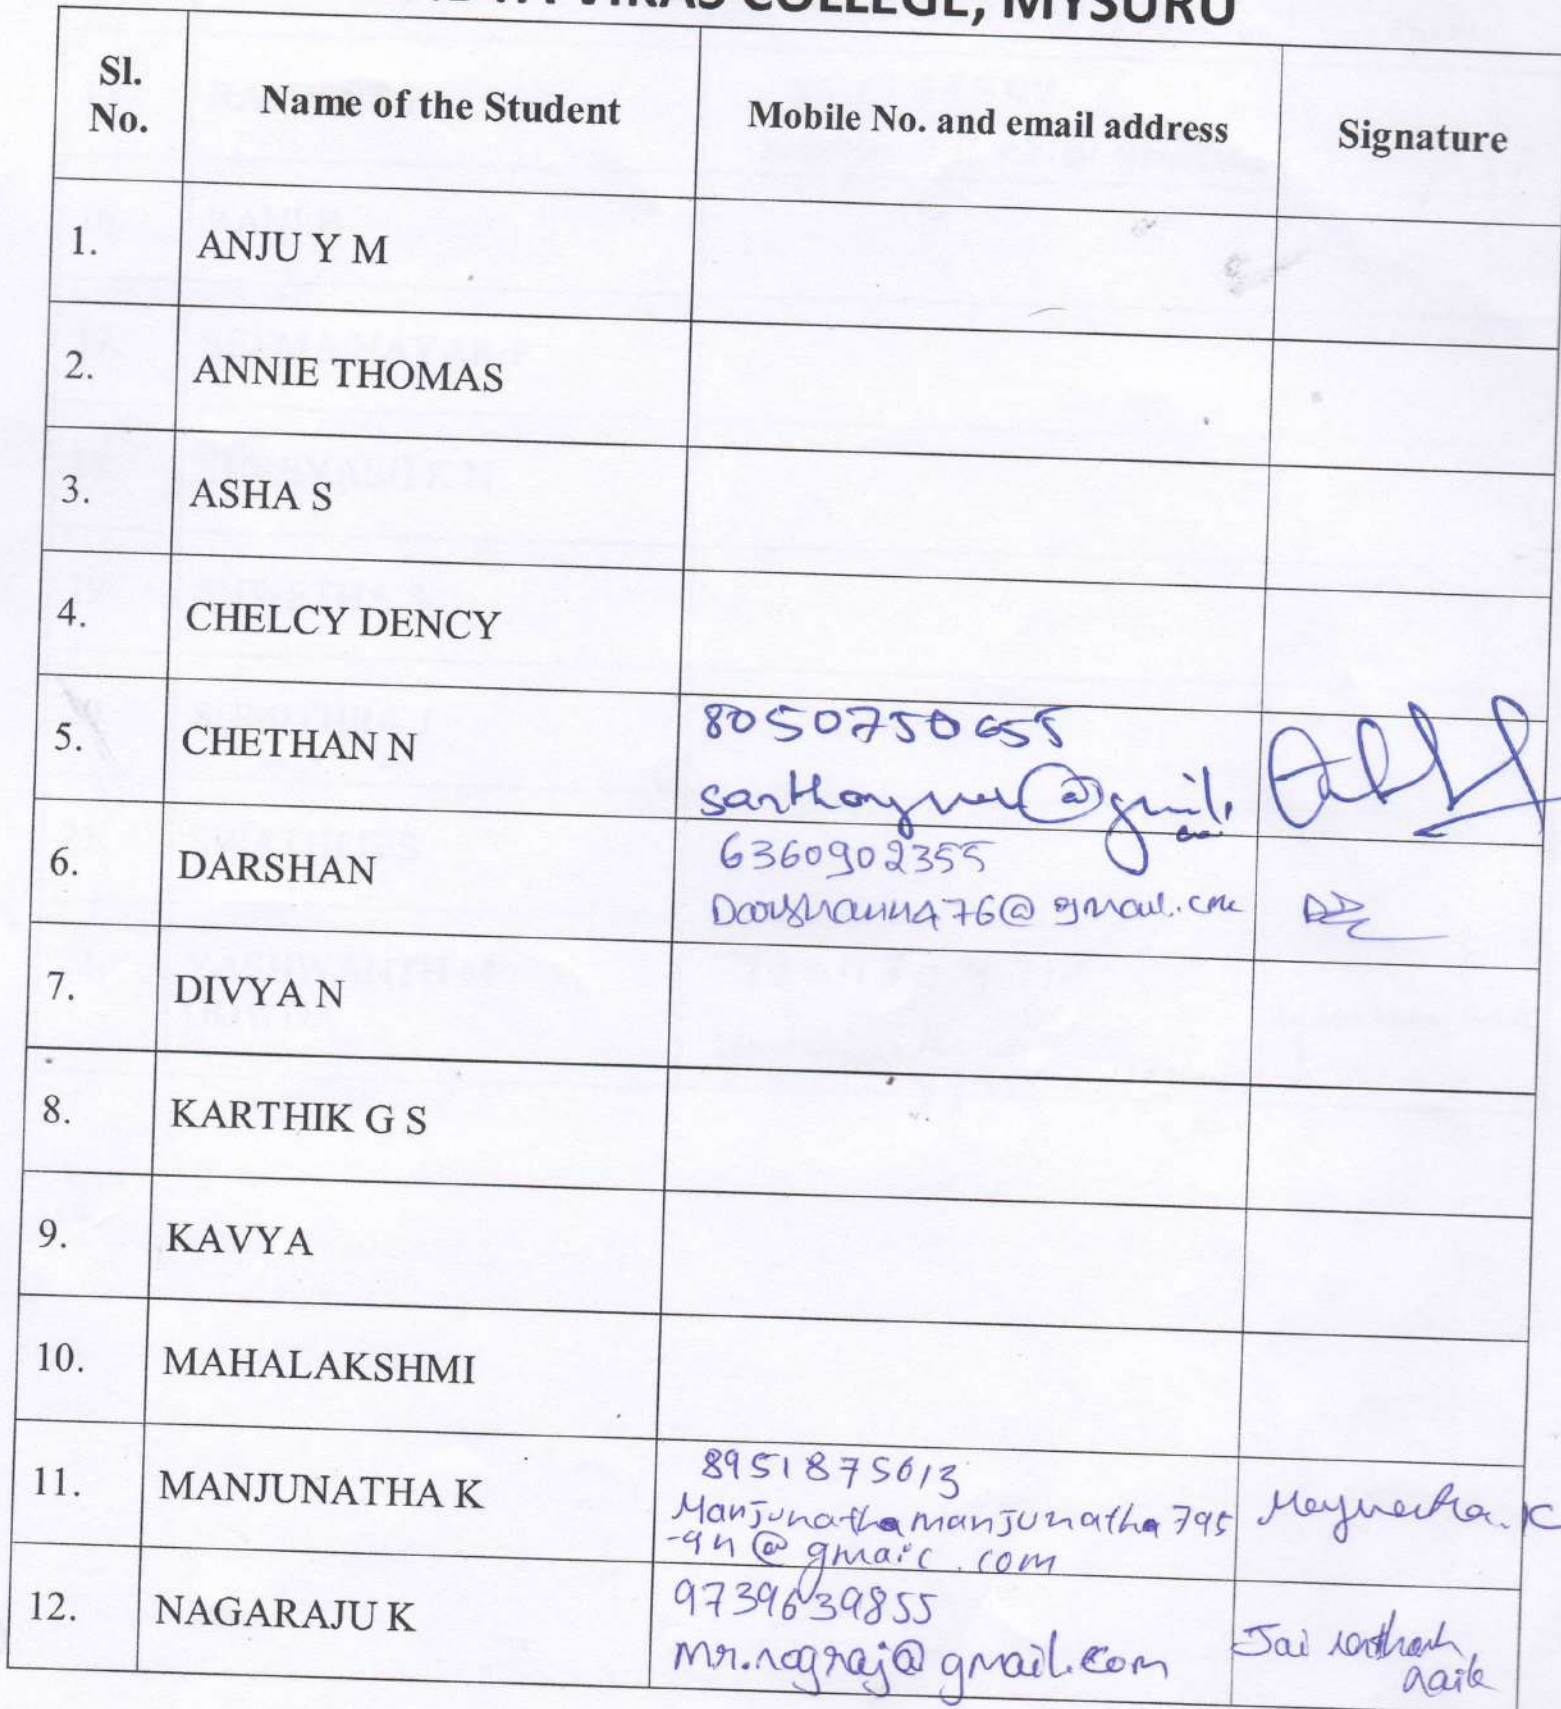 VIKAS COLLEGE, MYSURU
Sl. No. Name of the Student Mobile No. and email address Signature
1. ANJU Y M
2. ANNIE THOMAS
3. ASHA S
4. CHELCY DENCY
5. CHETHAN N 8050750655
6. DARSHAN 6360902355
7. DIVYA N
8. KARTHIK G S
9. KAVYA
10. MAHALAKSHMI
11. MANJUNATHA K 8951875613
Manjunathamanjunatha795
-9n@gmail.com
12. NAGARAJU K 9739639855
mr.nograj@gmail.com